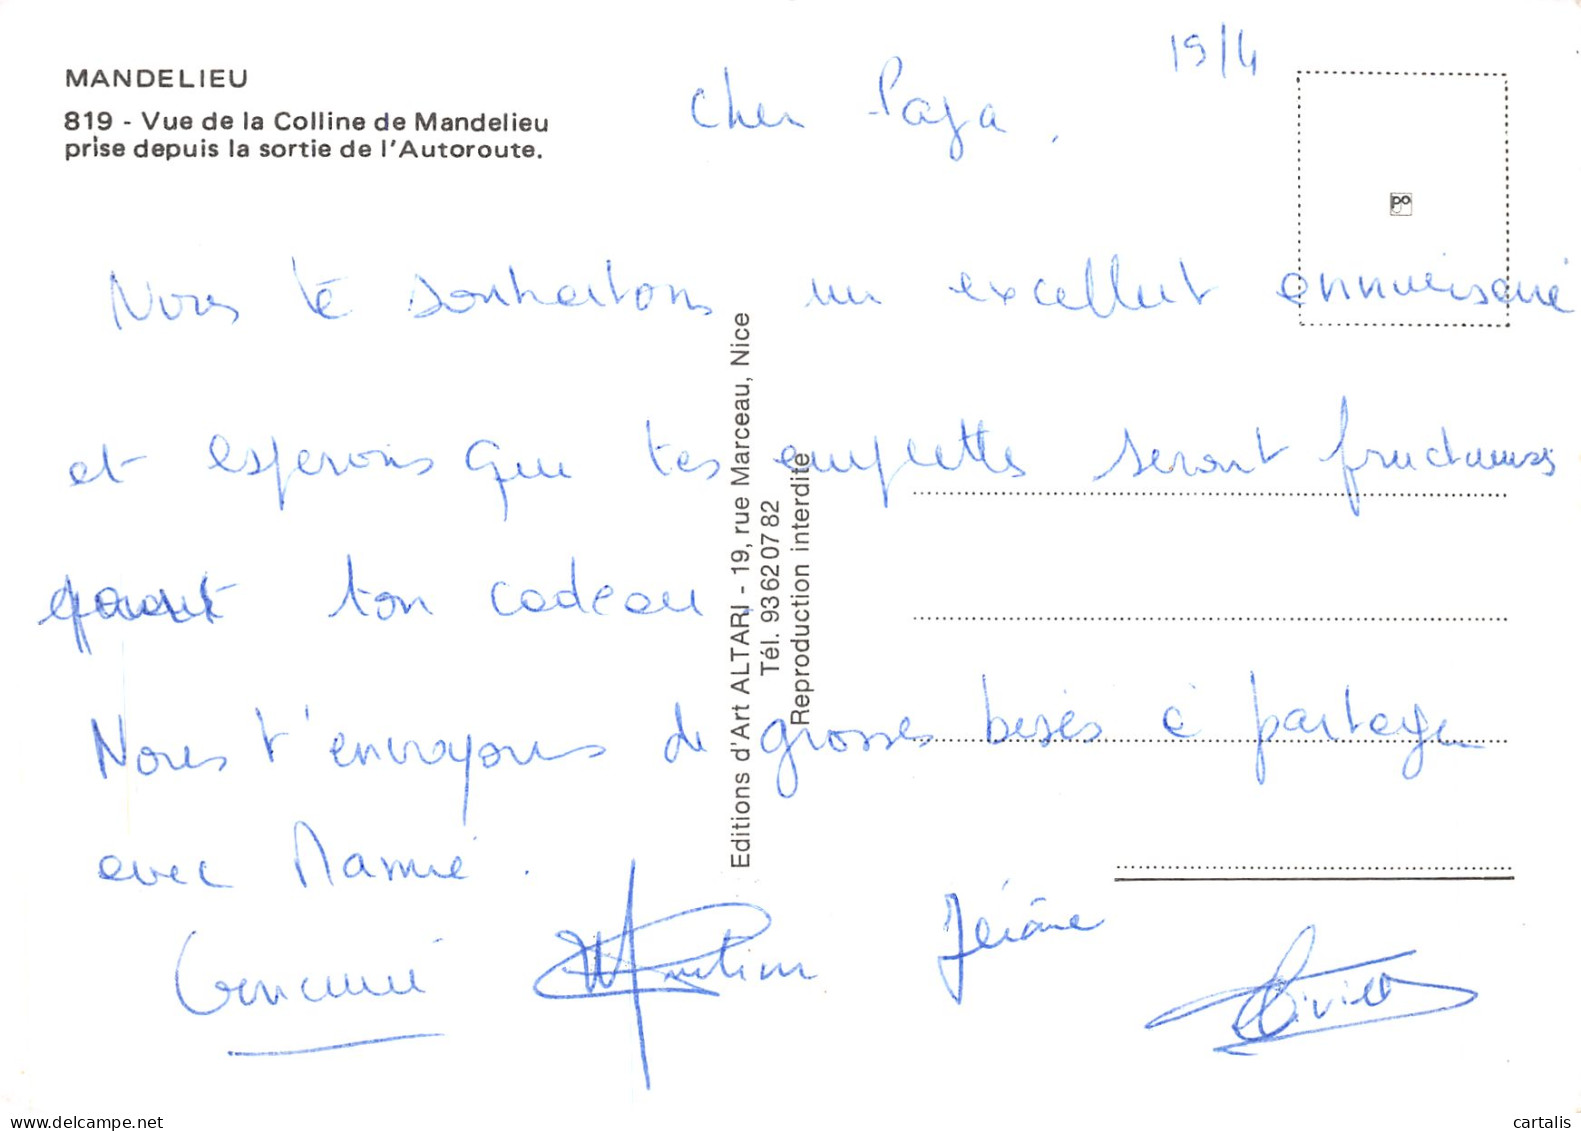 MANDELIEU
819 - Vue de la Colline de Mandelieu
prise depuis la sortie de l'Autoroute.
19/4
Cher Papa,
po
Nous te souhaitons un excellent anniversaire
et esperons que tes emplettes seront fructueuses
quant ton cadeau.
Nous t'envoyons de grosses bises à partager
avec Mamie.
Jérôme
Olivier
Editions d'Art ALTARI - 19, rue Marceau, Nice
Tél. 93 62 07 82
Reproduction interdite
cartalis
delcampe.net